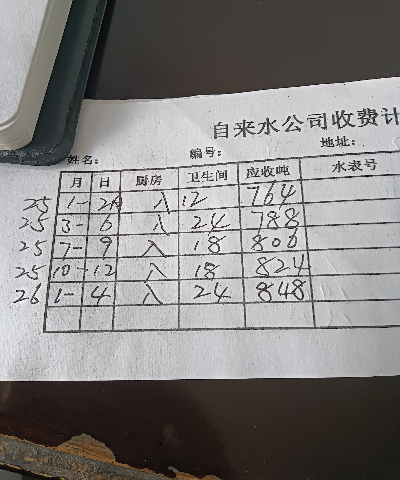 自来水公司收费计
姓名: 编号: 地址:
月 日 厨房 卫生间 应收吨 水表号
25 1- 入 12 764
25 3- 6 入 24 788
25 7- 9 入 18 806
25 10- 12 入 18 824
26 1- 4 入 24 848